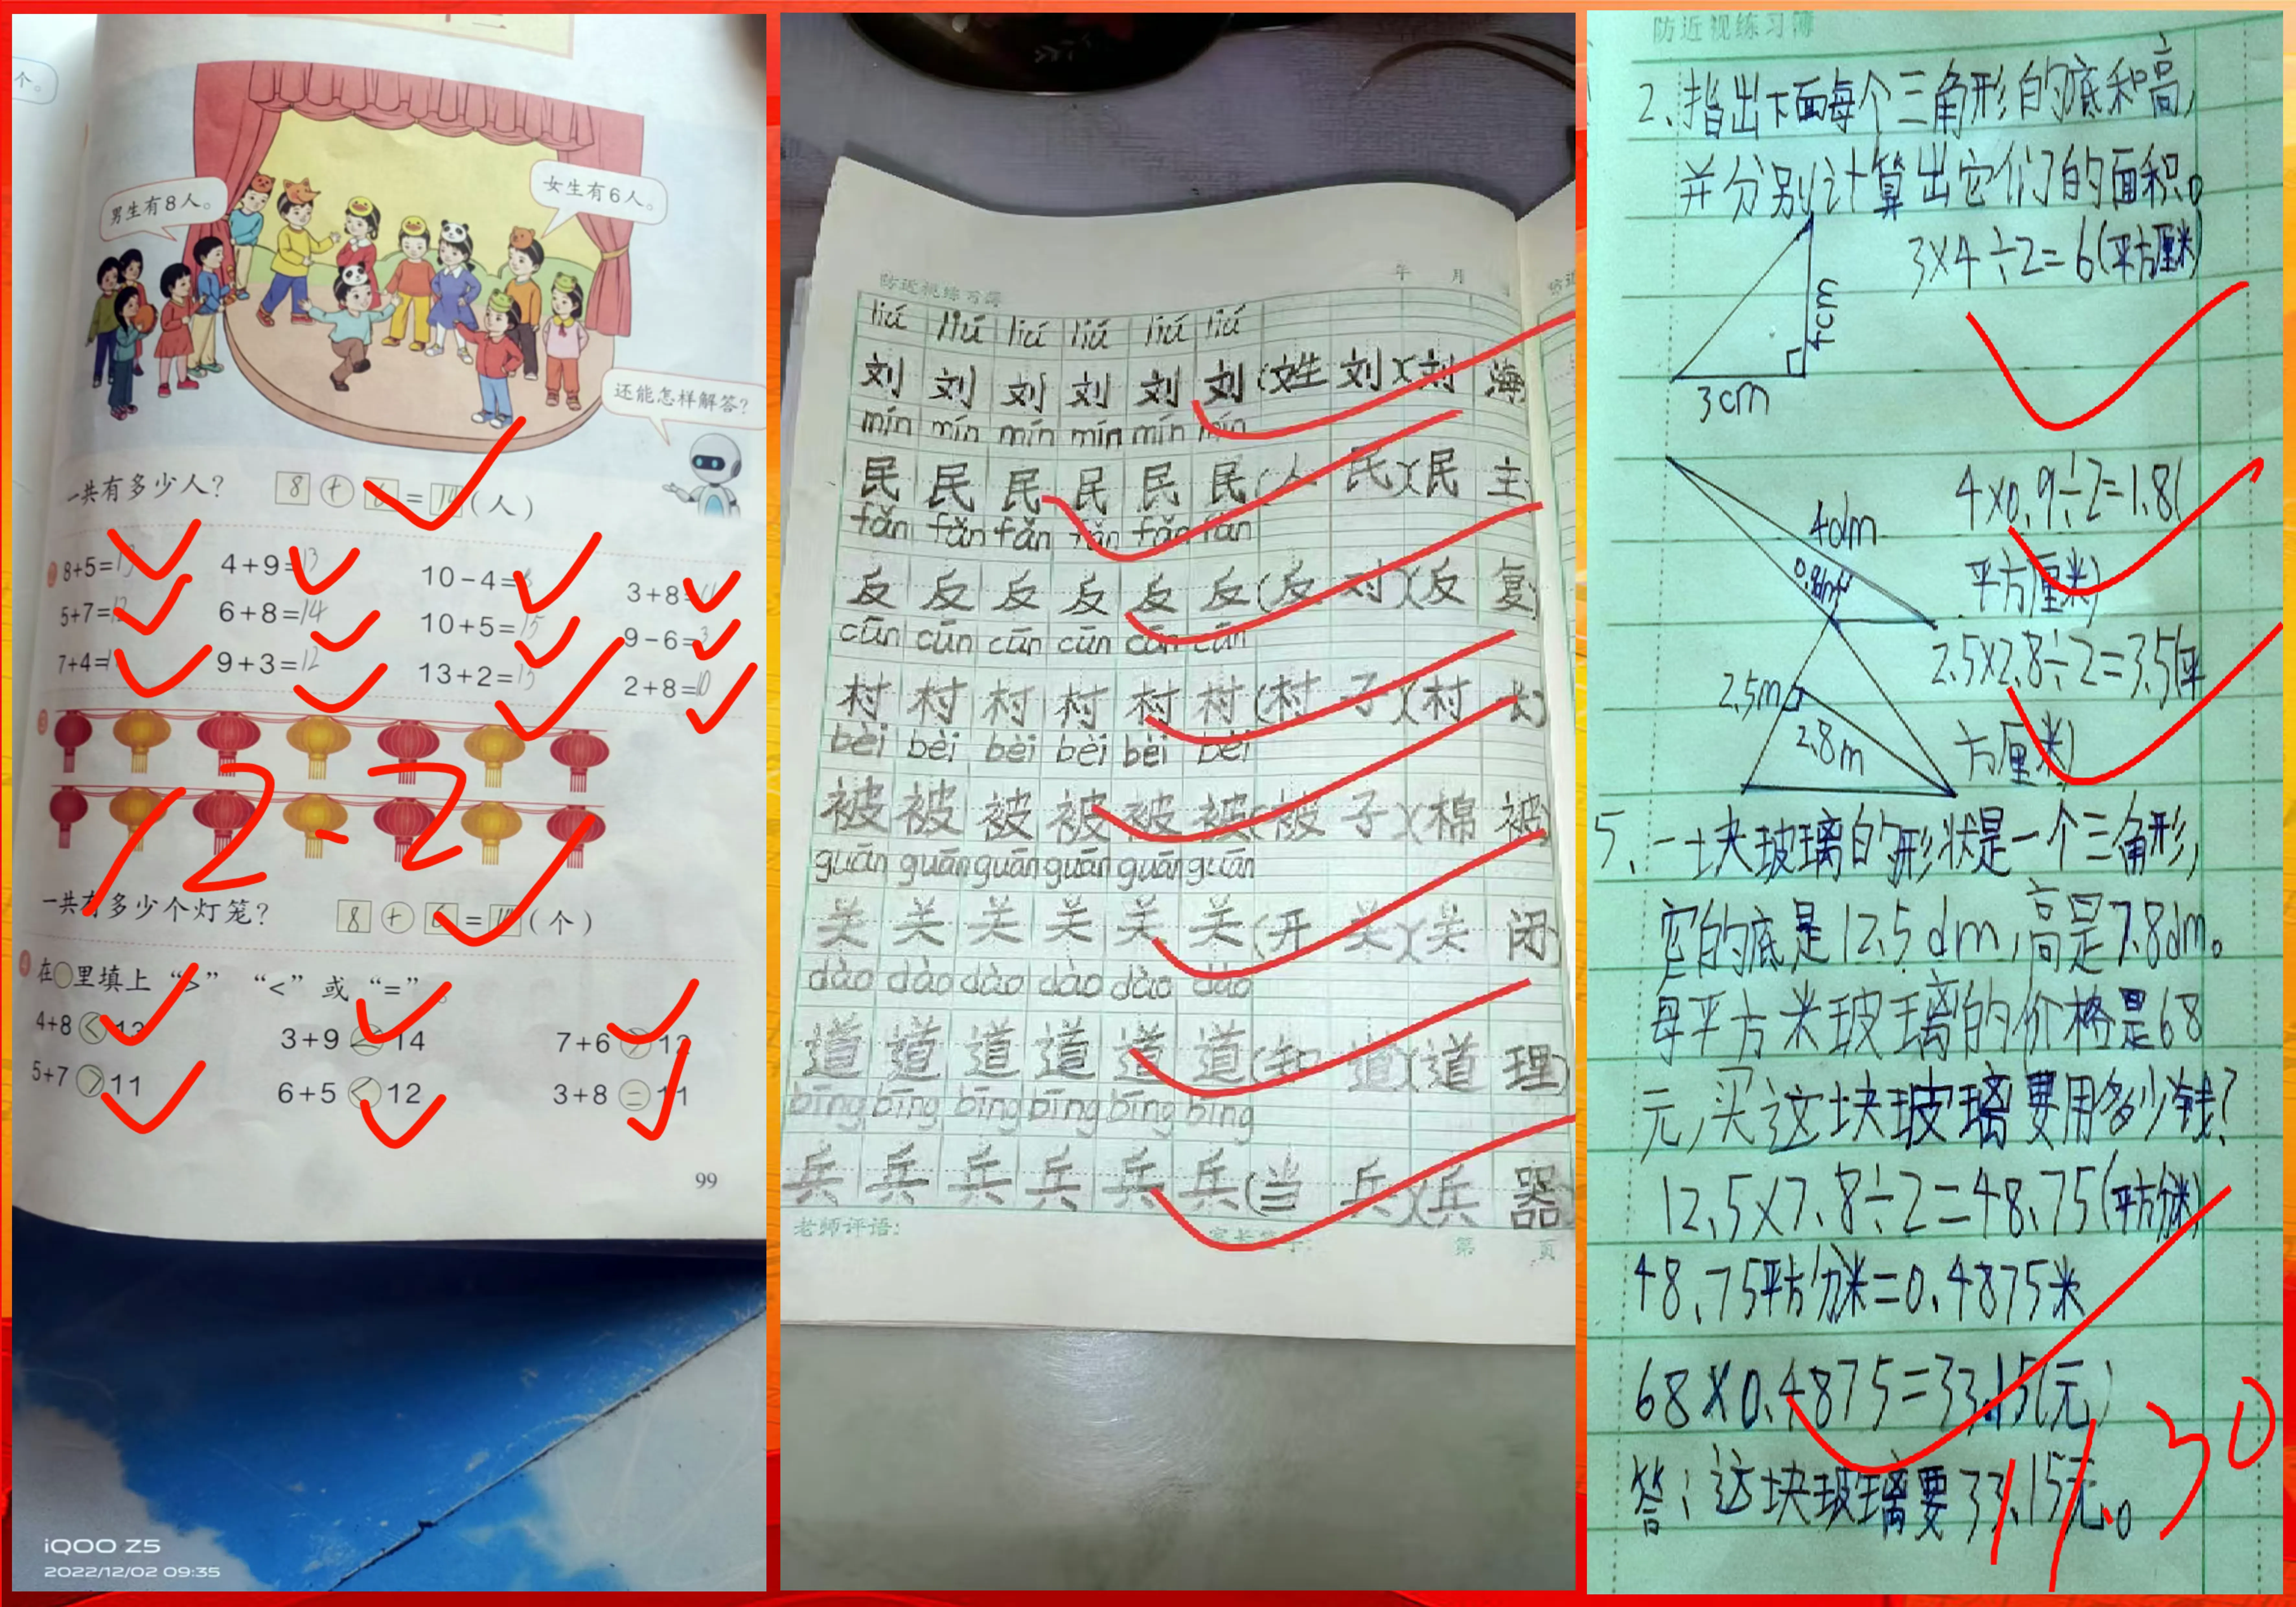 个。
男生有8人。
女生有6人。
还能怎样解答?
一共有多少人? 8+6=14(人)
8+5=13 4+9=13 10-4=6 3+8=11
5+7=12 6+8=14 10+5=15 9-6=3
7+4=11 9+3=12 13+2=15 2+8=10
12-2
一共有多少个灯笼? 8+6=14(个)
在○里填上“>”“<”或“=”。
4+8<13 3+9<14 7+6>12
5+7>11 6+5<12 3+8=11
99
iQOO Z5
2022/12/02 09:35
防近视练习簿 年 月
liú liú liú liú liú liú
刘 刘 刘 刘 刘 刘(姓 刘)(刘 海
mín mín mín mín mín mín
民 民 民 民 民 民(人 民)(民 主
fǎn fǎn fǎn fǎn fǎn fǎn
反 反 反 反 反 反(反 对)(反 复)
cūn cūn cūn cūn cūn cūn
村 村 村 村 村 村(村 子)(村 长)
bèi bèi bèi bèi bèi bèi
被 被 被 被 被 被(被 子)(棉 被)
guān guān guān guān guān guān
关 关 关 关 关 关(开 关)(关 闭)
dào dào dào dào dào dào
道 道 道 道 道 道(知 道)(道 理)
bīng bīng bīng bīng bīng bīng
兵 兵 兵 兵 兵 兵(当 兵)(兵 器
老师评语: 家长签字: 第 页
防近视练习簿
2、指出下面每个三角形的底和高,
并分别计算出它们的面积。
3×4÷2=6(平方厘米)
4cm
3cm
4×0.9÷2=1.8(
平方厘米)
4dm
0.9dm
2.5×2.8÷2=3.5(平
方厘米)
2.5m
2.8m
5、一块玻璃的形状是一个三角形,
它的底是12.5dm,高是7.8dm。
每平方米玻璃的价格是68
元,买这块玻璃要用多少钱?
12.5×7.8÷2=48.75(平方分米)
48.75平方分米=0.4875米
68×0.4875=33.15(元)
答:这块玻璃要33.15元。
11.30